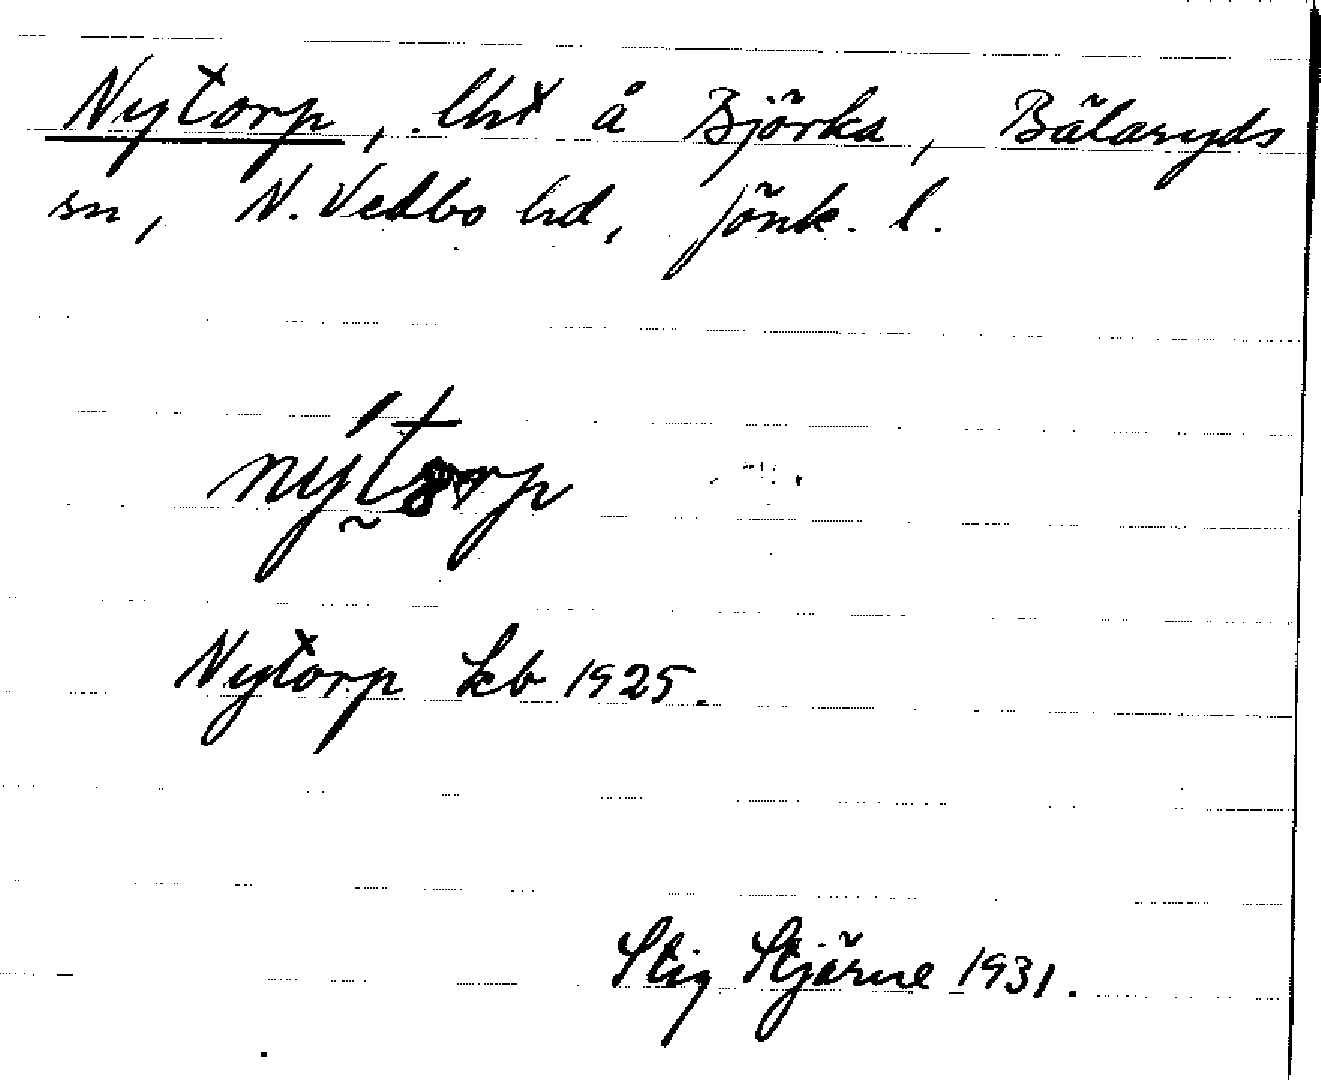 Nytorp, lht å Björka, Bälaryds
sn, N. Vedbo hd, Jönk. l.
nytorp
Nytorp kb 1925.
Stig Stjärne 1931.